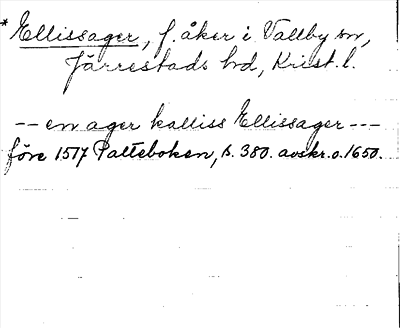 * Ellissager, f. åker i Vallby sn,
Järrestads hd, Krist. l.
-- en ager kalliss Ellissager ---
före 1517 Palteboken, s. 380. avskr. o. 1650.